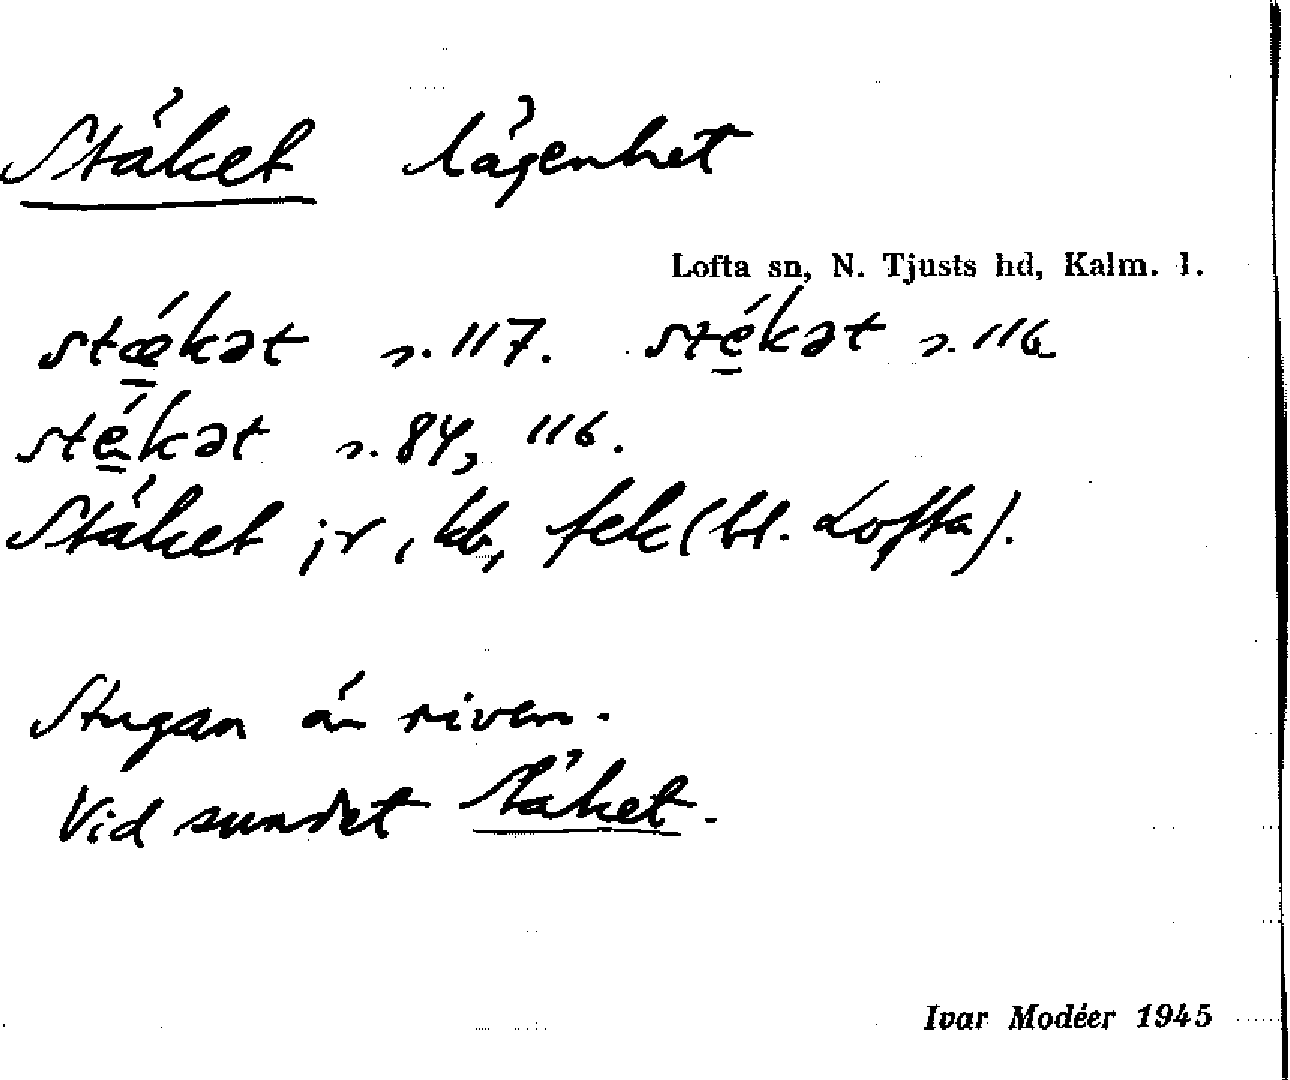 Stäket lägenhet
Lofta sn, N. Tjusts hd, Kalm. l.
stǽkət s. 117. stékət s. 116
stékət s. 84, 116.
Stäket jr, kb, fek (bl. Lofta).
Stugan är riven.
Vid sundet Stäket.
Ivar Modéer 1945